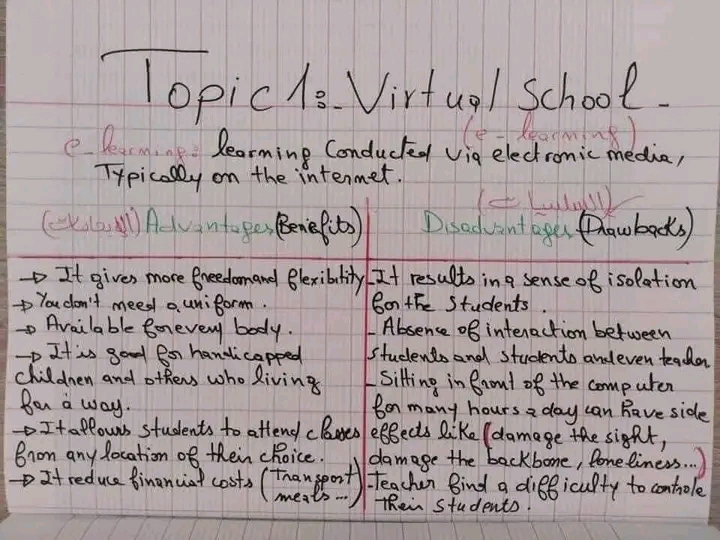 Topic 1:- Virtual School -
(e-learning)
e-learning: learning conducted via electronic media,
Typically on the internet.
(الإيجابيات) Advantages (Benefits)
→ It gives more freedom and flexibility
→ You don't need a uniform.
→ Available for every body.
→ It is good for handicapped
children and others who living
far a way.
→ It allours students to attend classes
from any location of their choice.
→ It reduce financial costs (Transport
meals...)
(السلبيات)
Disadvantages (Drawbacks)
- It results in a sense of isolation
for the students.
- Absence of interaction between
students and students and even teacher
- Sitting in front of the computer
for many hours a day can have side
effects like (damage the sight,
damage the backbone, loneliness...)
- Teacher find a difficulty to controle
their students.